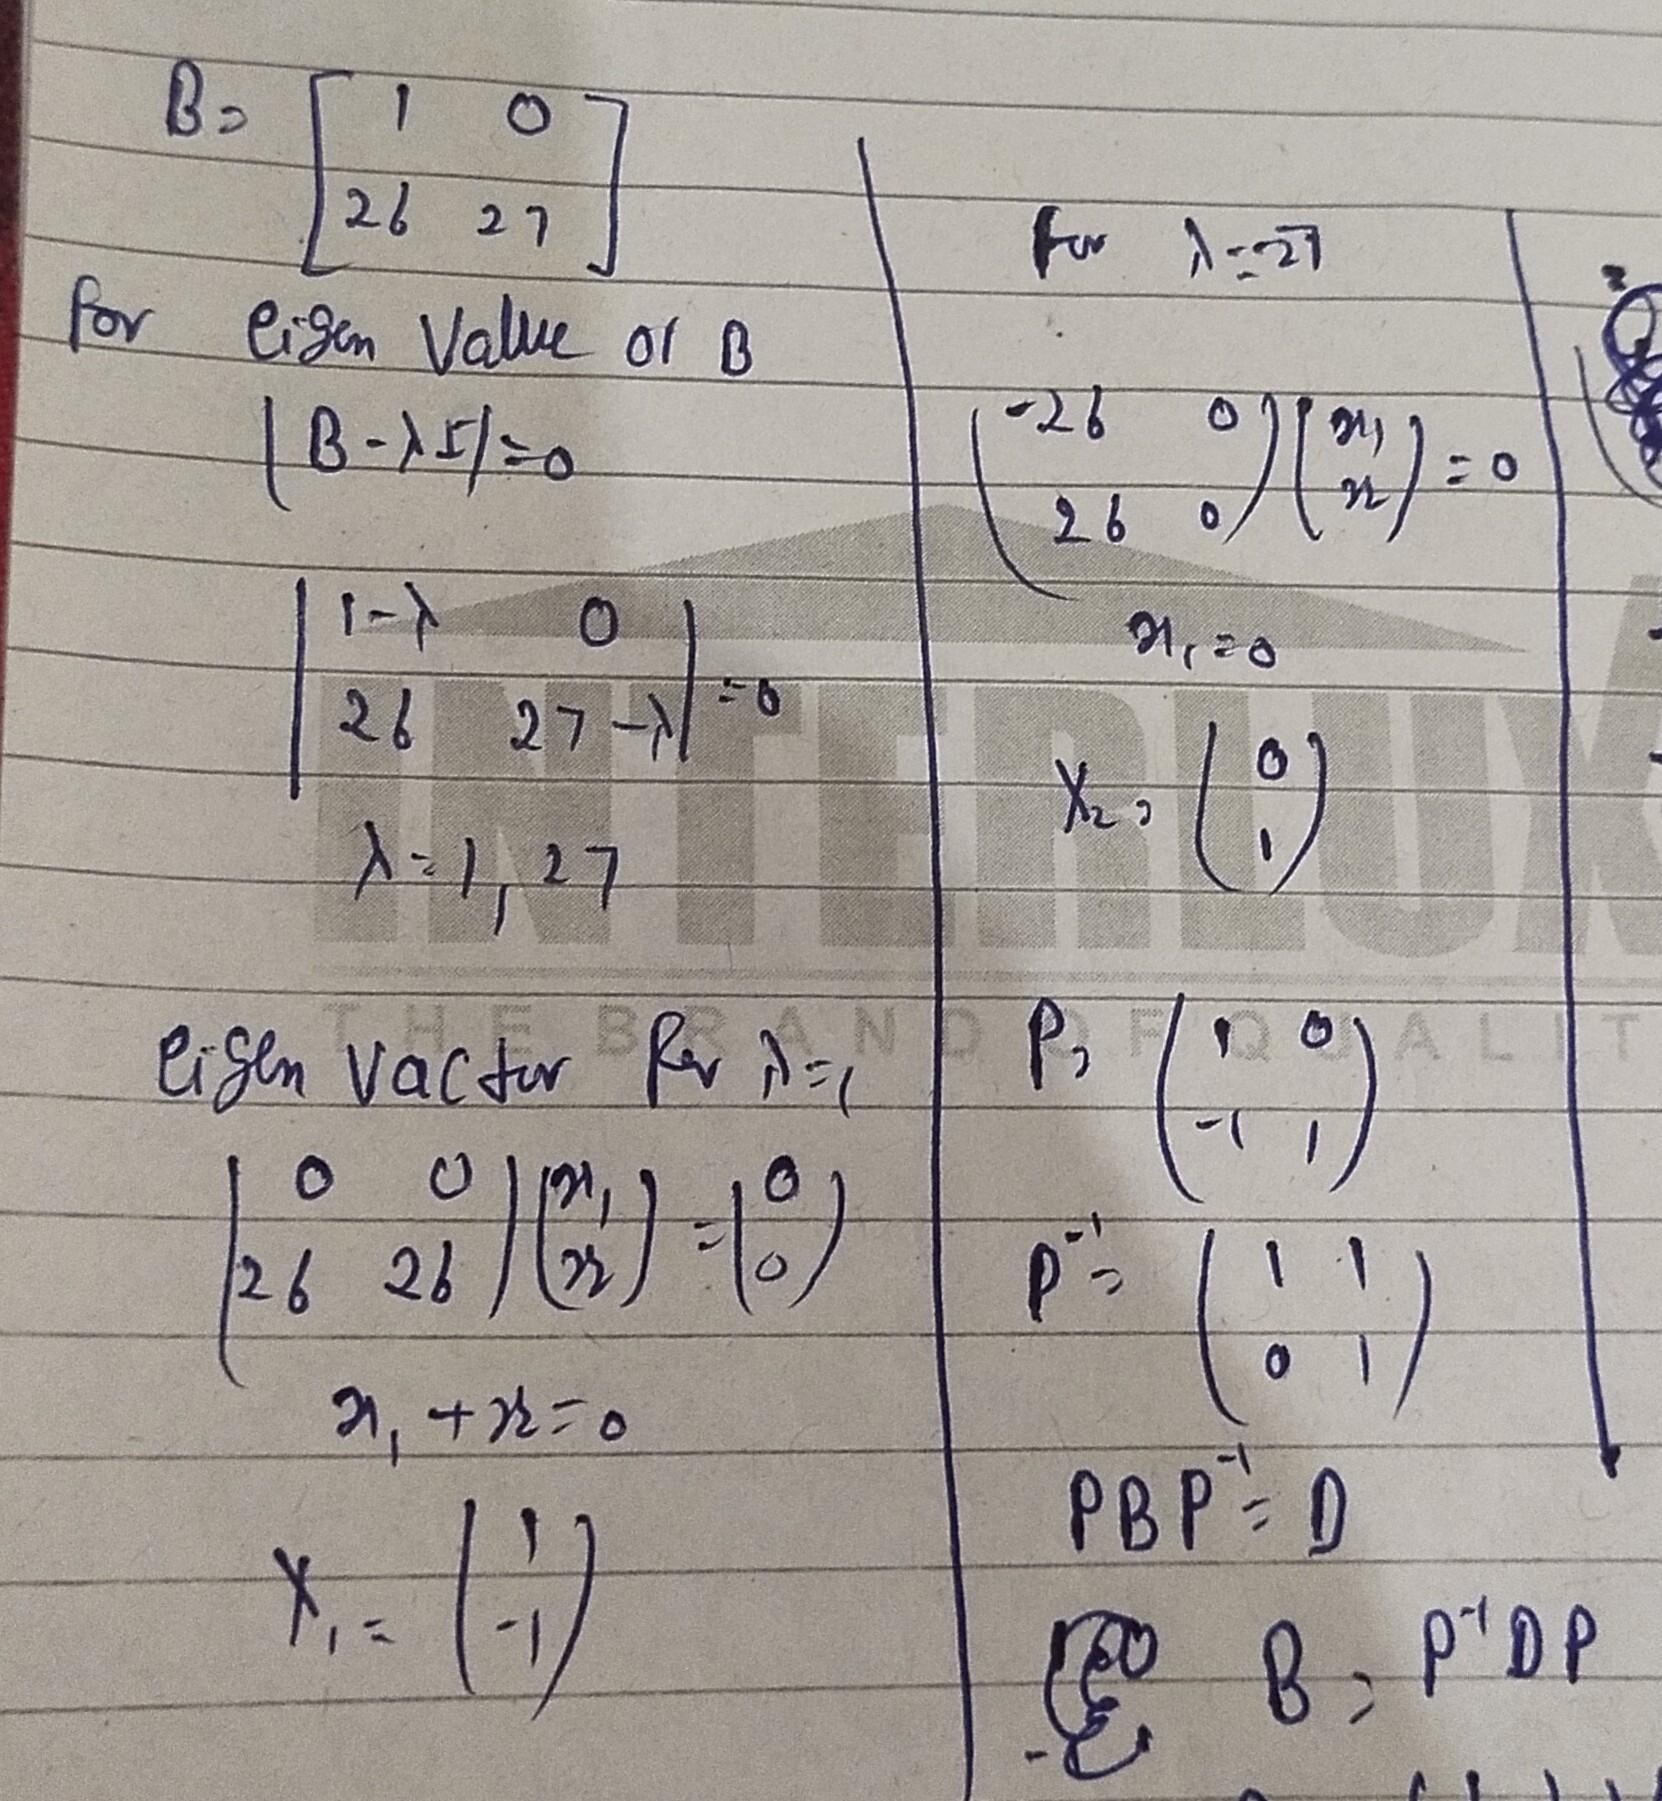 B = [ 1 0
26 27 ]
for eigen value of B
| B - λI | = 0
| 1-λ 0
26 27-λ | = 0
λ = 1, 27
eigen vactor for λ=1
( 0 0
26 26 ) ( x₁
x₂ ) = ( 0
0 )
x₁ + x₂ = 0
X₁ = ( 1
-1 )
for λ = 27
( -26 0
26 0 ) ( x₁
x₂ ) = 0
x₁ = 0
X₂ = ( 0
1 )
P = ( 1 0
-1 1 )
P⁻¹ = ( 1 1
0 1 )
PBP⁻¹ = D
B = P⁻¹DP
INTERLUX
THE BRAND OF QUALIT